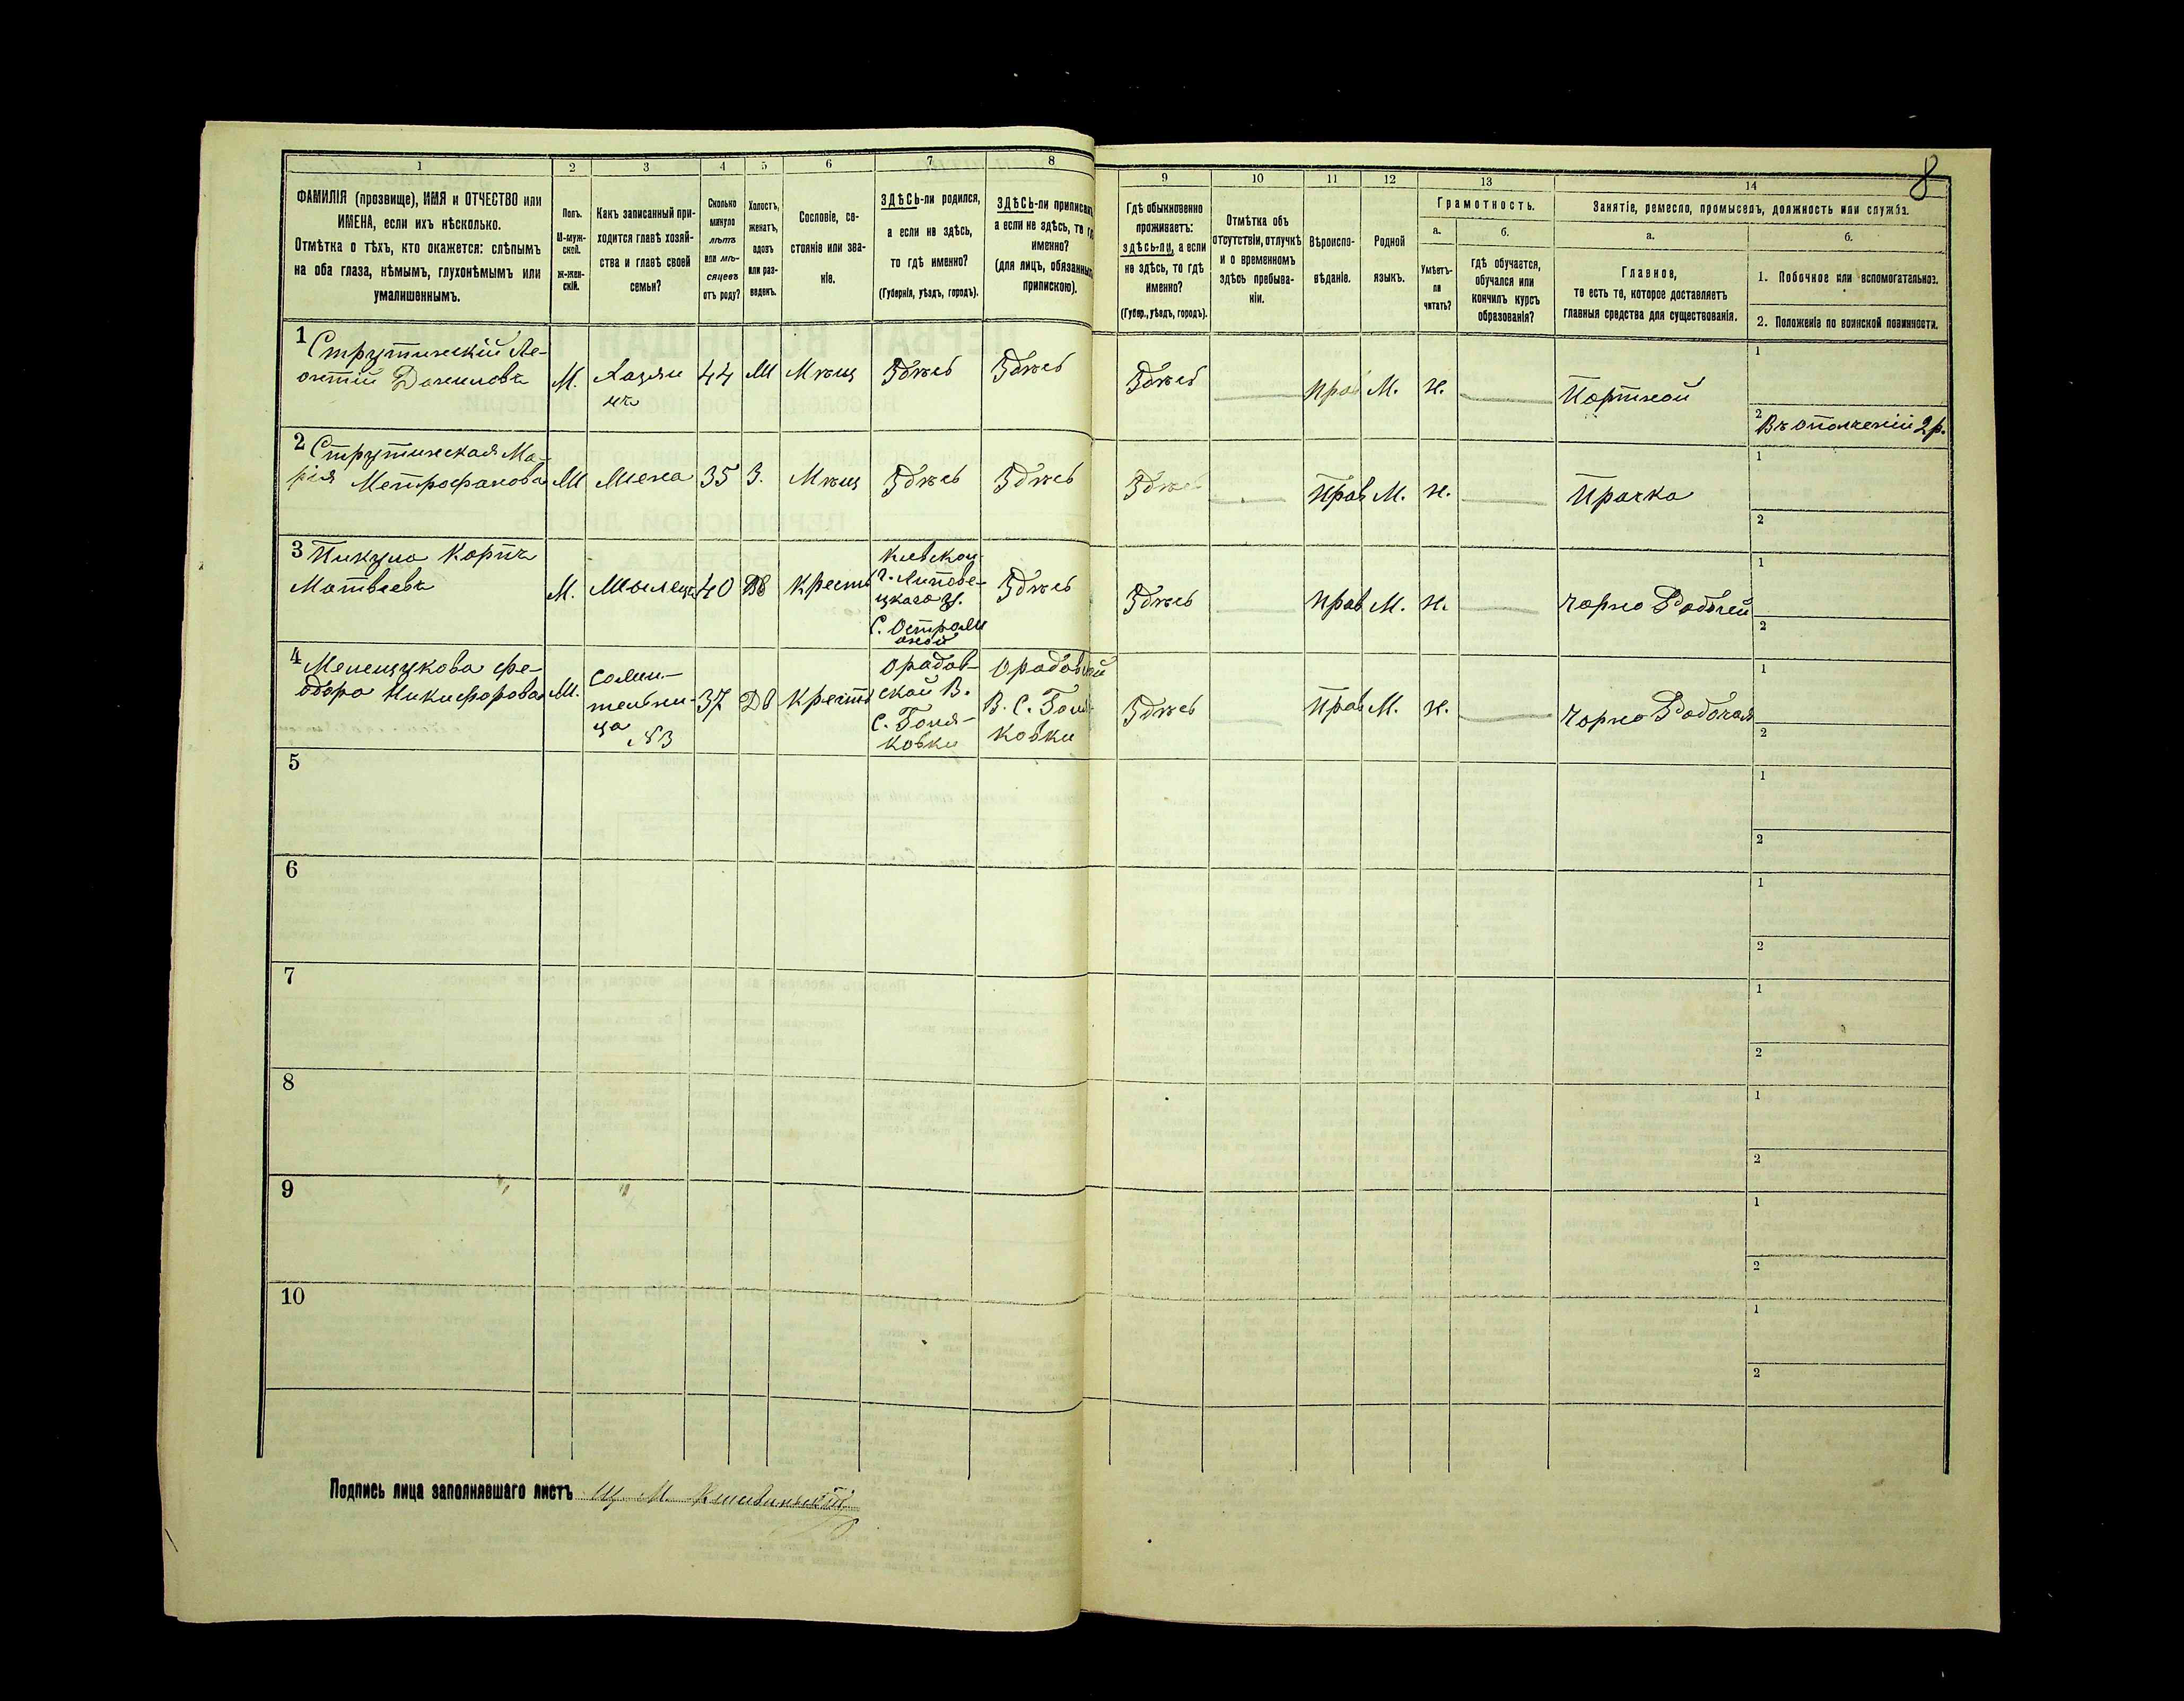 8
1 2 3 4 5 6 7 8 9 10 11 12 13 14
ФАМИЛІЯ (прозвище), ИМЯ и ОТЧЕСТВО или
ИМЕНА, если ихъ нѣсколько.
Отмѣтка о тѣхъ, кто окажется: слѣпымъ
на оба глаза, нѣмымъ, глухонѣмымъ или
умалишеннымъ.
Полъ.
М-муж-
ской.
ж-жен-
скій.
Какъ записанный при-
ходится главѣ хозяй-
ства и главѣ своей
семьи?
Сколько
минуло
лѣтъ
или мѣ-
сяцевъ
отъ роду?
Холостъ,
женатъ,
вдовъ
или раз-
веденъ.
Сословіе, со-
стояніе или зва-
ніе.
ЗДѢСЬ-ли родился,
а если не здѣсь,
то гдѣ именно?
(Губернія, уѣздъ, городъ).
ЗДѢСЬ-ли приписанъ,
а если не здѣсь, то гдѣ
именно?
(для лицъ, обязанныхъ
припискою).
Гдѣ обыкновенно
проживаетъ:
здѣсь-ли, а если
не здѣсь, то гдѣ
именно?
(Губер., уѣздъ, городъ).
Отмѣтка объ
отсутствіи, отлучкѣ
и о временномъ
здѣсь пребыва-
ніи.
Вѣроиспо-
вѣданіе.
Родной
языкъ.
Грамотность.
а.
Умѣетъ-
ли
читать?
б.
гдѣ обучается,
обучался или
кончилъ курсъ
образованія?
Занятіе, ремесло, промыселъ, должность или служба.
а.
Главное,
то есть то, которое доставляетъ
главныя средства для существованія.
б.
1. Побочное или вспомогательное.
2. Положеніе по воинской повинности.
1 Струтинскій Ле-
онтій Даниловъ М. Хазяи
нъ 44 М Мѣщ Здѣсь Здѣсь Здѣсь прав М. н. Портной
1
2 Въ ополченіи 2 р.
2 Струтинская Ма-
рія Метрофанова М Жена 35 З. Мѣщ Здѣсь Здѣсь Здѣсь Прав М. н. Прачка
1
2
3 Пикула Корпъ
Матвѣевъ М. 40 Вд Крест
Кіевской
г. Липове-
цкаго у.
Здѣсь Здѣсь Прав М. н. Чорно Робочей
1
2
4 Мелещукова Фе-
одора Никифорова М.
сожи-
тельни-
ца
№3
37 Дв Крест
Орадов-
ской В.
с. Поня-
ковки
Орадовской
В. С. Поня-
ковки
Здѣсь Прав М. н. Чорно Робочая
1
2
5
1
2
6
1
2
7
1
2
8
1
2
9
1
2
10
1
2
Подпись лица заполнявшаго листъ